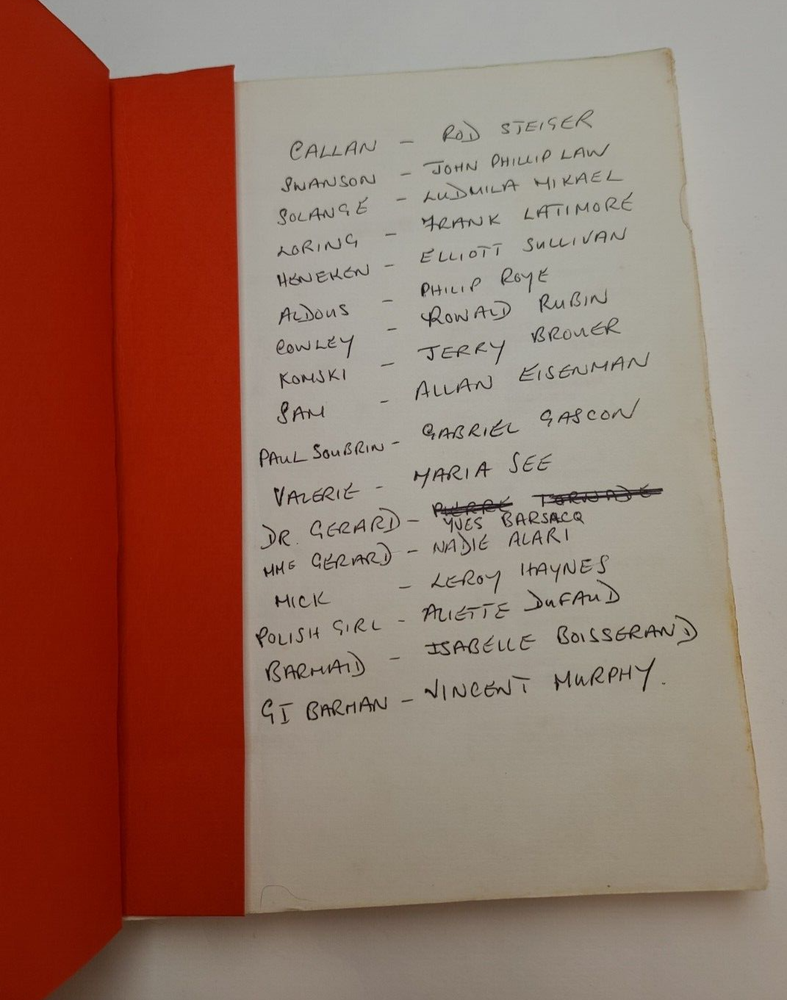 CALLAN - ROD STEIGER
SWANSON - JOHN PHILLIP LAW
SOLANGE - LUDMILA MIKAEL
LORING - FRANK LATIMORE
HENEKEN - ELLIOTT SULLIVAN
ALDOUS - PHILIP ROYE
COWLEY - RONALD RUBIN
KOMSKI - JERRY BROUER
SAM - ALLAN EISENMAN
PAUL SOUBRIN - GABRIEL GASCON
VALERIE - MARIA SEE
DR. GERARD - YVES BARSACQ
MME GERARD - NADIE ALARI
MICK - LEROY HAYNES
POLISH GIRL - ALIETTE DUFAUD
BARMAID - ISABELLE BOISSERAND
GI BARMAN - VINCENT MURPHY.